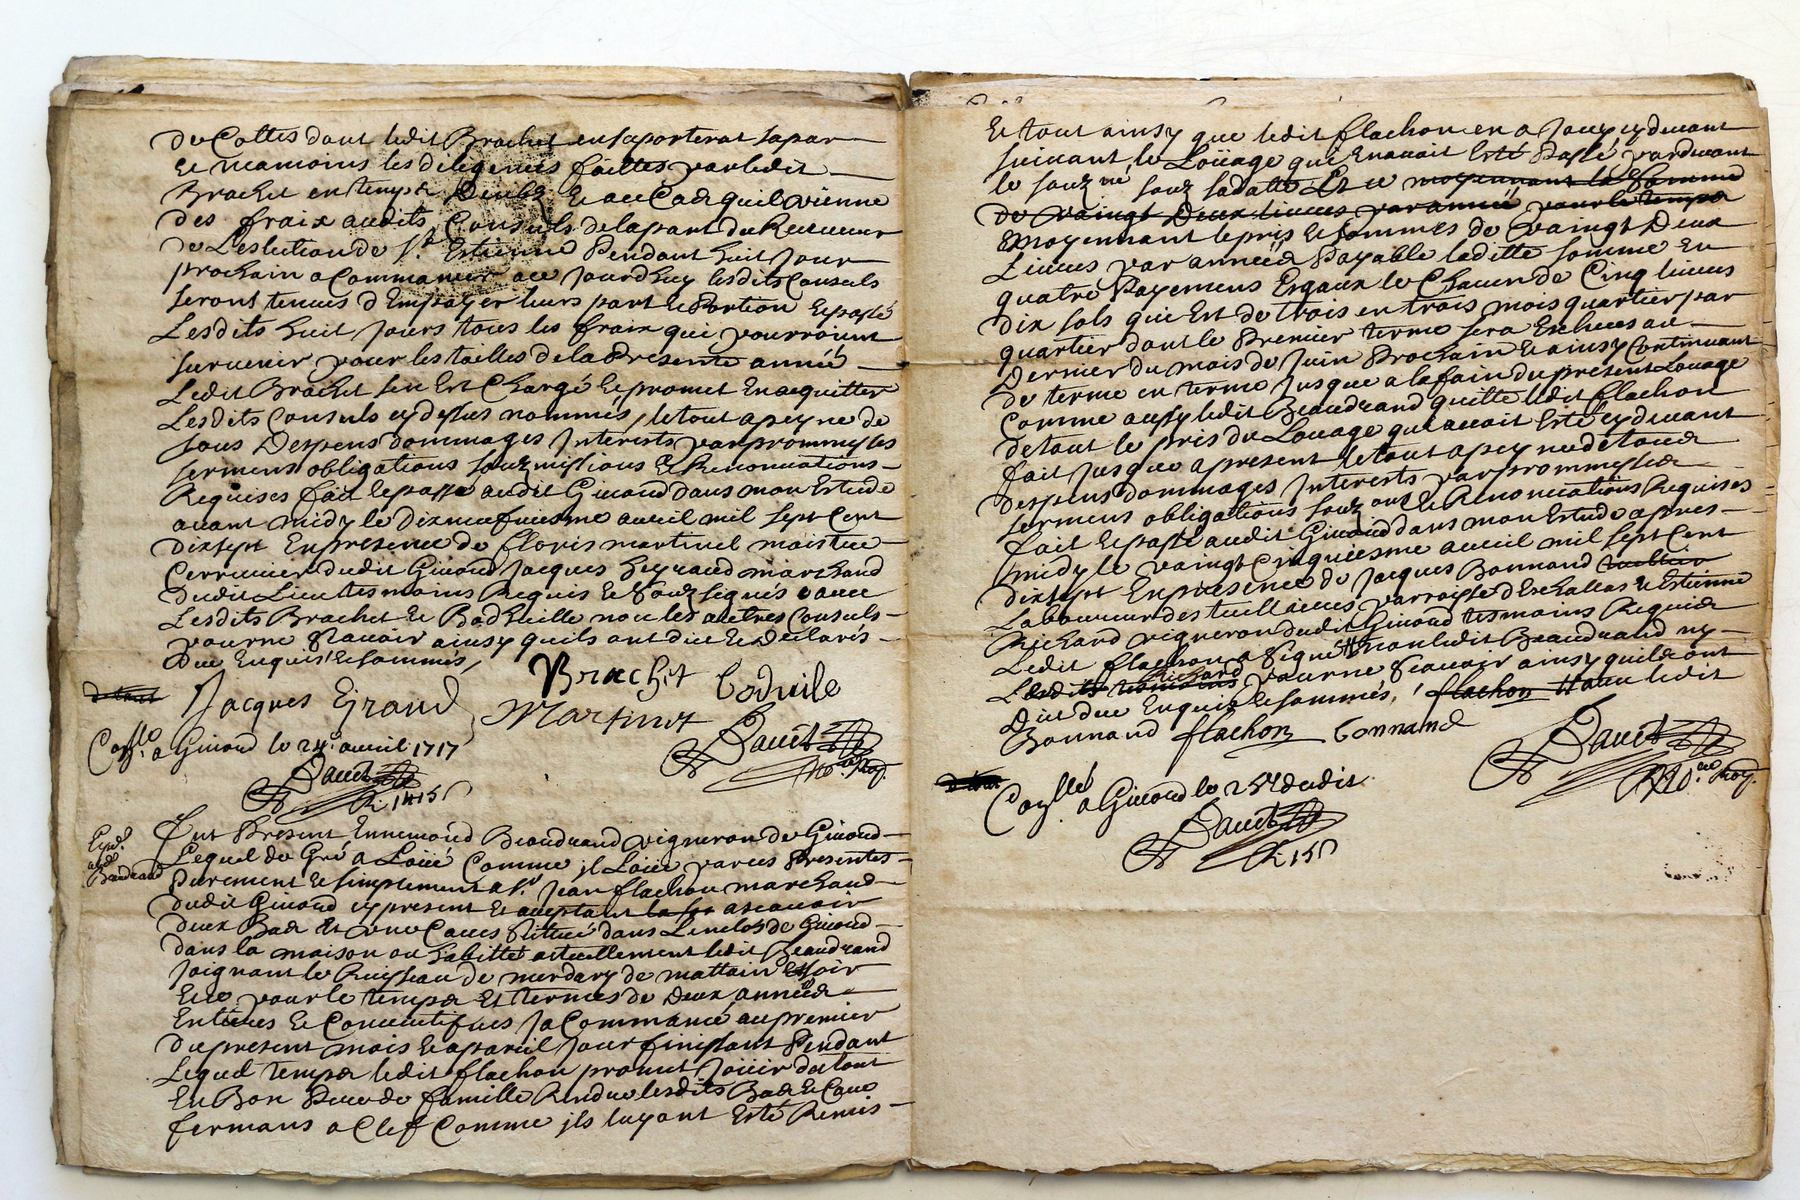 de Cottes dont ledit Brachet en saporterat sa par
et neamoins les diligences faittes par ledit
Brachet en temps deubz Et au Cas quil vienne
des fraix audits Consuls de la part du Receveur
de Leslection de St. Estienne Pendant huit jour
prochain a Commancer ace jourdhuy lesdits Consuls
seront tenues d'En payer leurs part et Portion Et passé
Lesdits huit jours tous les fraix qui pourroient
survenir pour les tailles de la Presente année
Ledit Brachet sen Est Chargé Et promet En acquitter
Lesdits Consuls cy dessus nommés, le tout a peyne de
tous Despens dommages Interests par prommesses
sermens obligations souzmissions et Renonciations
Requises fait et passé audit Givord dans mon Estude
avant midy le Dixneufviesme avril mil sept Cent
dixsept En presence de floris martinet maistre
serrurier dudit Givord, Jacques Eyraud marchand
dudit Lieu tesmoins Requis et Souzsignés avec
Lesdits Brachet et Badheille non les autres Consuls
pour ne scavoir ainsy quils ont dit et declarés
due Enquis et sommés,
Jacques Eyraud Brachet
Martinet
Coñllé a Givord le 24e. avril 1717
Davet
R 14 15s
Davet
no.re Roy.
Fut Present Ennemond Beaudrand vigneron de Givord
Lequel de Gré a Loüé Comme jl Loüe par ces Presentes
Purement et simplement a Sr. Jean flachon marchand
dudit Givord cy present et acceptant ascavoir
deux Bas Et une Caves scittué dans Lenclos de Givord
dans la maison ou habitte actuellement ledit Beaudrand
joignant le Ruisseau de merdary de mattain Et soir
Et ce pour le temps Et termes de Deux années
Entieres et Consecutifues ja Commancé au premier
du present mois et a pareil jour finissant Pendant
Lequel temps ledit flachon promet joüir du tout
En Bon Pere de famille Rendre lesdits Bas et Cave
fermans a Clef Comme jls luy ont Esté Remis
Beaudrand
Et tout ainsy que ledit flachon en a jouy cy devant
suivant le Loüage qui En avait Esté Passé par devant
le souz.né souz sa datte Et ce moyennant la somme
de vaingt Deux livres par année pour le temps
Moyennant le pris et sommes de vaingt Deux
Livres par années Payable laditte somme en
quatre Payemens Esgaux le Chacun de Cinq livres
dix sols qui Est de trois en trois mois quartier par
quartier dont le Premier terme sera Escheu au
Dernier du mois de juin Prochain Et ainsy Continuant
de terme en terme jusque a la fain du present Louage
Comme aussy ledit Beaudrand quitte ledit flachon
de tout le pris du Louage qui avait Esté cy devant
fait jusque a present le tout a peyne de tous
despens dommages Interests par prommesses
sermens obligations souz.ons et Renonciations Requises
fait et passé audit Givord dans mon Estude apres
midy le vaingt Cinquiesme avril mil sept Cent
dixsept En presence de Jacques Bonnand
Laboureur des tuillieres parroisse d'Eschallas et Estienne
Richard vigneron dudit Givord tesmoins Requis
Ledit flachon a signé non ledit Beaudrand ny
Richard pour ne scavoir ainsy quils ont
Dit due Enquis et sommés, flachon avec ledit
Bonnand flachon bonnand
Davet
No.re Roy.
Coñllé a Givord le 25e dudit
Davet
R 15s